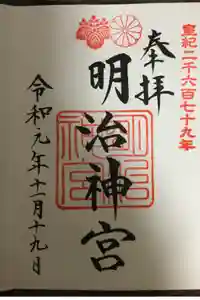 皇紀二千六百七十九年
奉拝
明治神宮
令和元年十一月十九日